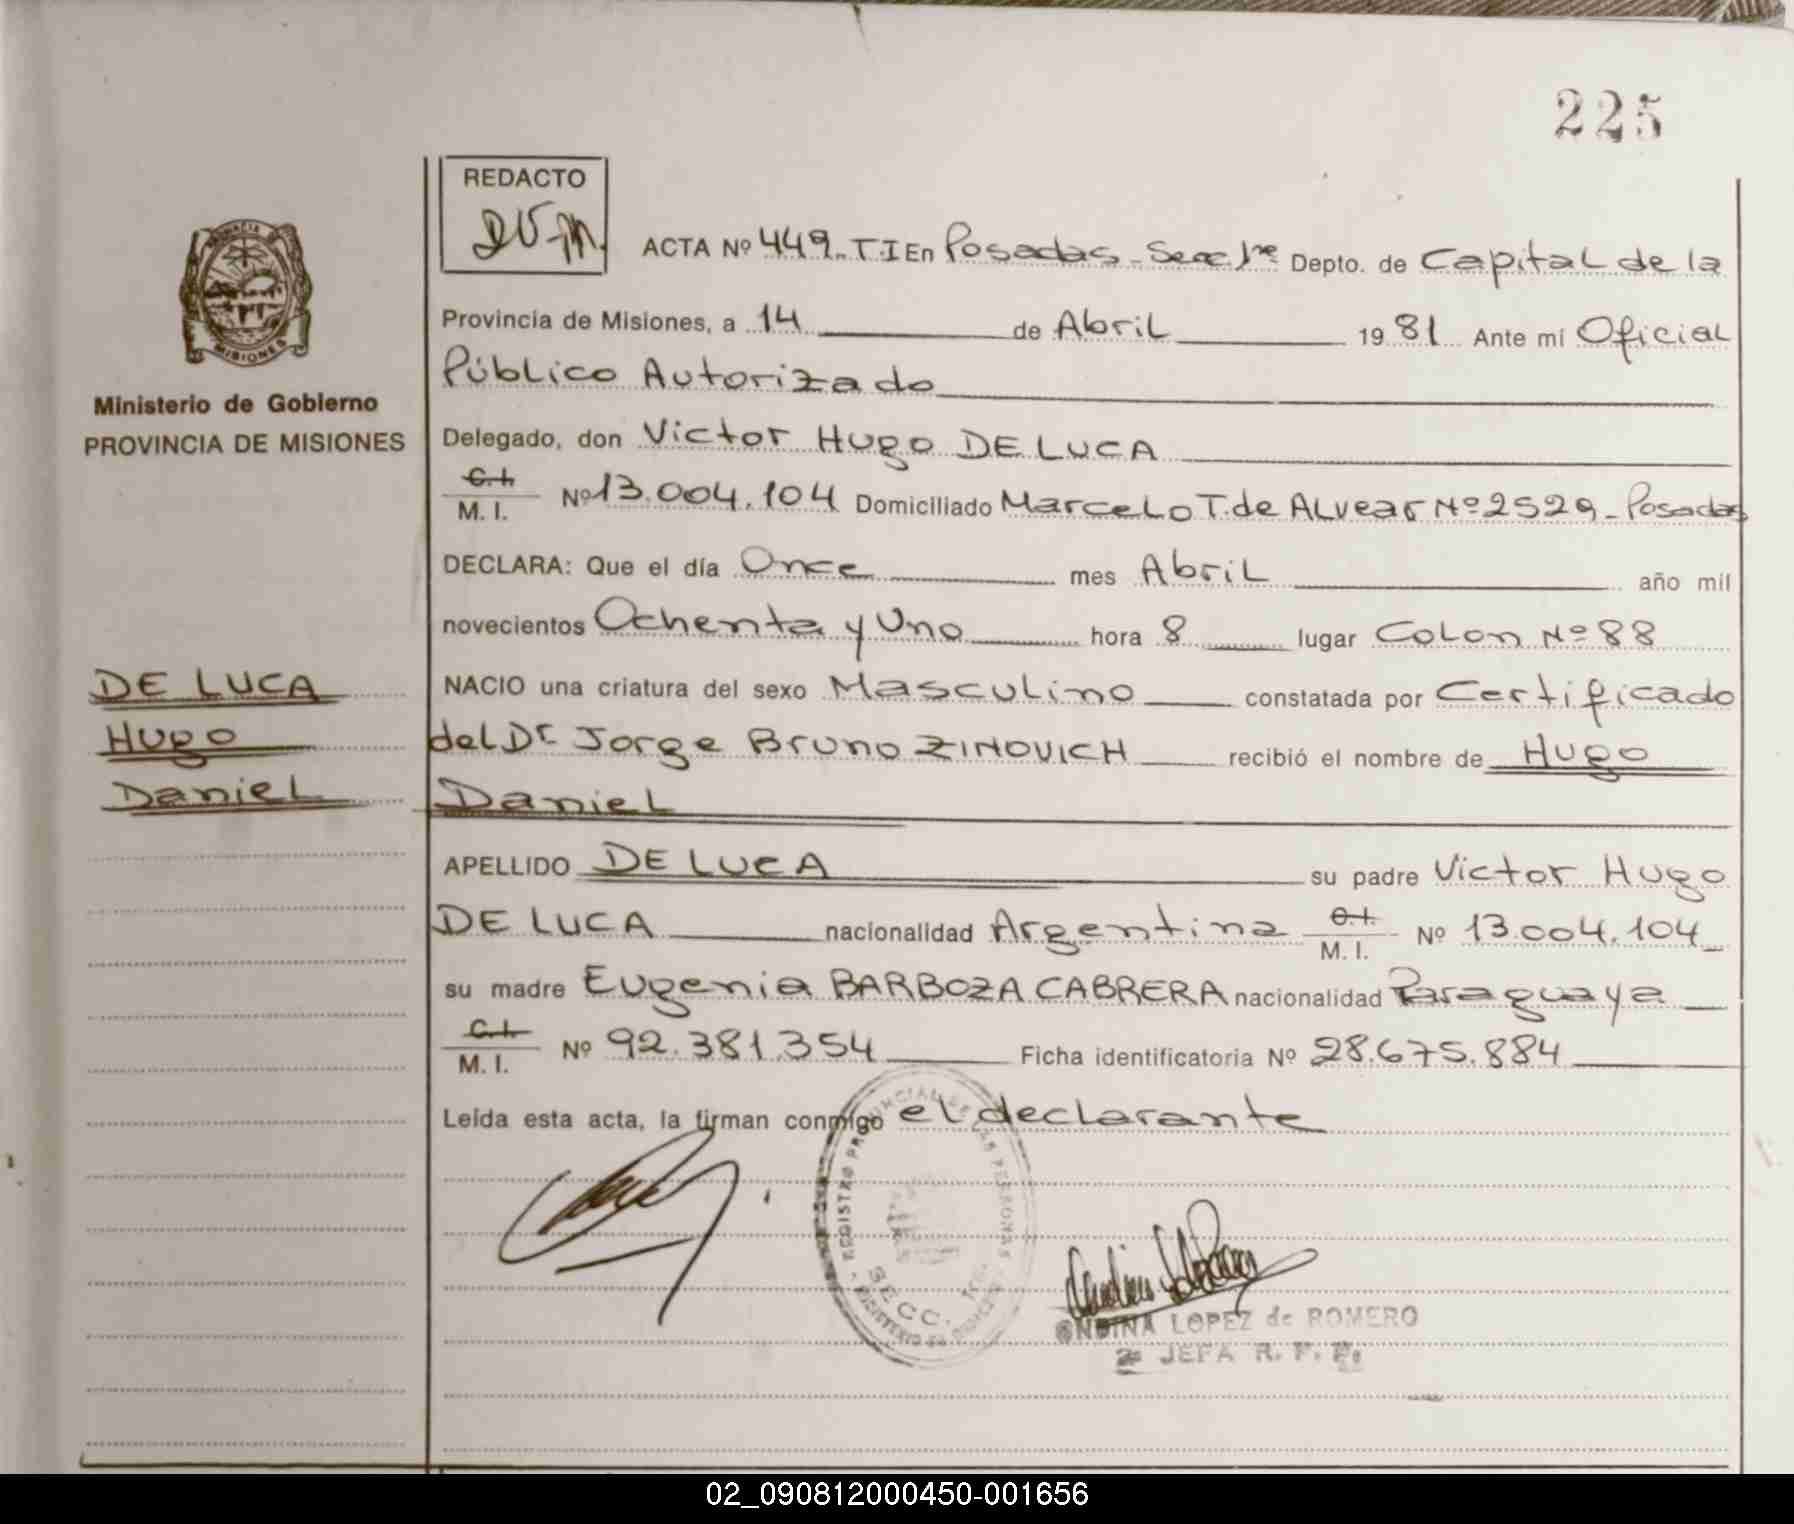 225
REDACTO
ACTA Nº 449 - T.I En Posadas - Secc 1ra Depto. de Capital de la
Provincia de Misiones, a 14 de Abril 1981 Ante mi Oficial
Público Autorizado
Ministerio de Gobierno
PROVINCIA DE MISIONES
Delegado, don Victor Hugo DE LUCA
C.I. M. I. Nº 13.004.104 Domiciliado Marcelo T. de Alvear Nº 2529 - Posadas
DECLARA: Que el día Once mes Abril año mil
novecientos Ochenta y Uno hora 8 lugar Colon Nº 88
DE LUCA
Hugo
Daniel
NACIO una criatura del sexo Masculino constatada por Certificado
del Dr Jorge Bruno ZINOVICH recibió el nombre de Hugo
Daniel
APELLIDO DE LUCA su padre Victor Hugo
DE LUCA nacionalidad Argentina C.I. M. I. Nº 13.004.104
su madre Eugenia BARBOZA CABRERA nacionalidad Paraguaya
C.I. M. I. Nº 92.381.354 Ficha identificatoria Nº 28.675.884
Leída esta acta, la firman conmigo el declarante
REGISTRO PROVINCIAL DE LAS PERSONAS
SECC.
ONDINA LOPEZ de ROMERO
JEFA R. P. P.
02_090812000450-001656